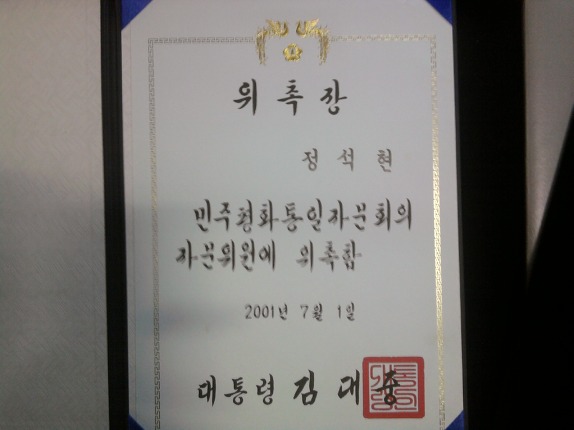 위촉장
정석현
민주평화통일자문회의
자문위원에 위촉함
2001년 7월 1일
대통령 김대중